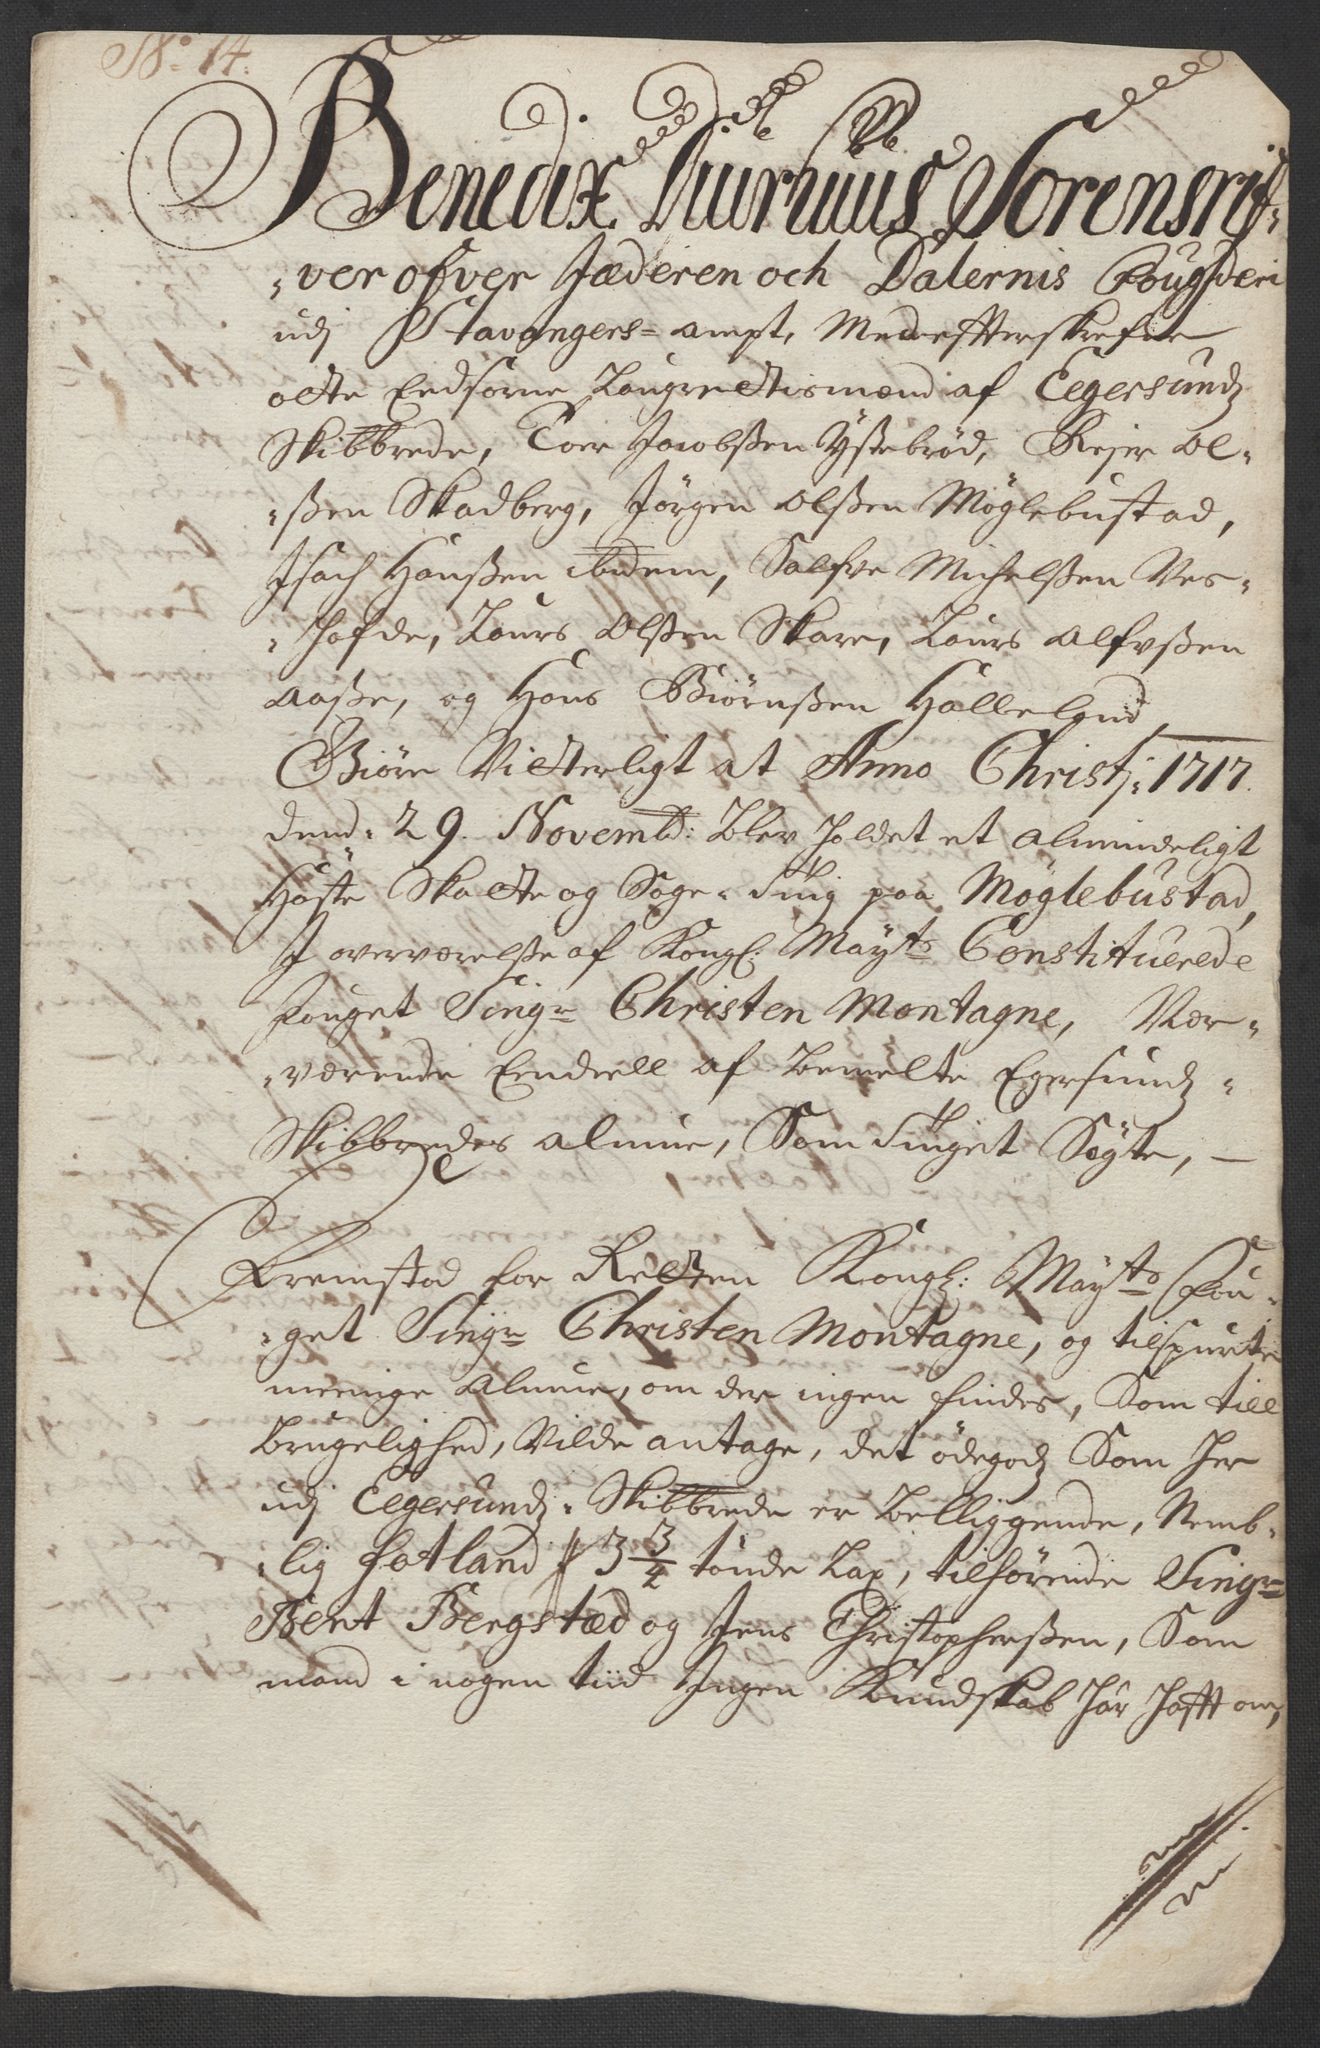 No: 14.
Benedix Sorenskrif-
-ver ofver Jæderen och Dalernis Fougderi
udj Stavangers-ampt, Med efftterskrefne
otte Eedsorne Laugrettismænd af Eegersundz
Skibbrede, Toer Jacobßen Ystebrød, Rejer Ol-
-ßen Skadberg, Jørgen Olßen Möglebustad,
Isach Hansen ibidem, Salfve Michelßen Ves-
-hofde, Laurs Olßen Skare, Laurs Alfvßen
Aaße, og Hans Biørnßen Hallelend
Giøre Vitterligt at Anno Christj: 1717.
dend: 29. Novembr: blev holdet et almindeligt
Høste Skatte og Sage-Ting paa Møglebustad,
J overværelße af Kongl: Mayts Constituerede
Fouget Singr Christen Montagne, Nær-
-værende Eendeell af bemelte Egersundz-
Skibbredes almue, Som Tinget Søgte, –
Fremstod for Retten Kongl: Mayts Fou-
-get Singr Christen Montagne, og tilspurte
meenige Almue, om der ingen findes, Som till
brugelighed, Vilde antage, det ödegodz Som her
udj Eegersundz-Skibbrede er beliggende, Nemb-
-lig Fotland / 3 3/4 tønde Lax, tilhørende Singr
Bent Bergstæd og Jens Christopherßen, Som
mand i nogen tiid Ingen Kundskab har hafft om,